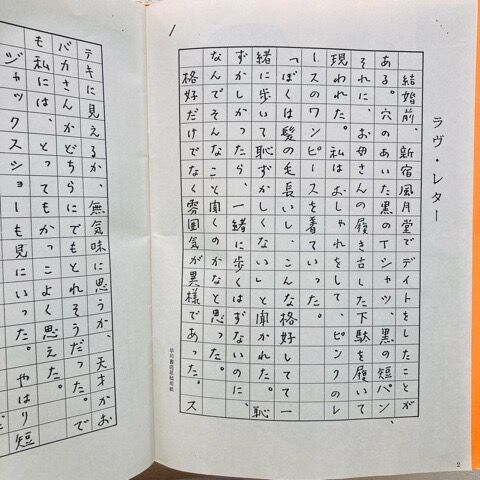 ラヴ・レター
結婚前、新宿風月堂でデイトをしたことが
ある。穴のあいた黒のTシャツ、黒の短パン、
それに、お母さんの履き古した下駄を履いて
現われた。私はおしゃれをして、ピンクのレ
ースのワンピースを着ていった。
「ぼくは髪の毛長いし、こんな格好してて一
緒に歩いて恥ずかしくない」と聞かれた。恥
ずかしかったら、一緒に歩くはずないのに、
なんでそんなこと聞くのかなと思った。
格好だけでなく雰囲気が異様であった。ス
早川書房原稿用紙
2
テキに見えるか、無気味に思うか、天才かお
バカさんかどちらにでもとれそうだった。で
も私には、とってもかっこよく思えた。
ジャックスショーも見にいった。やはり短